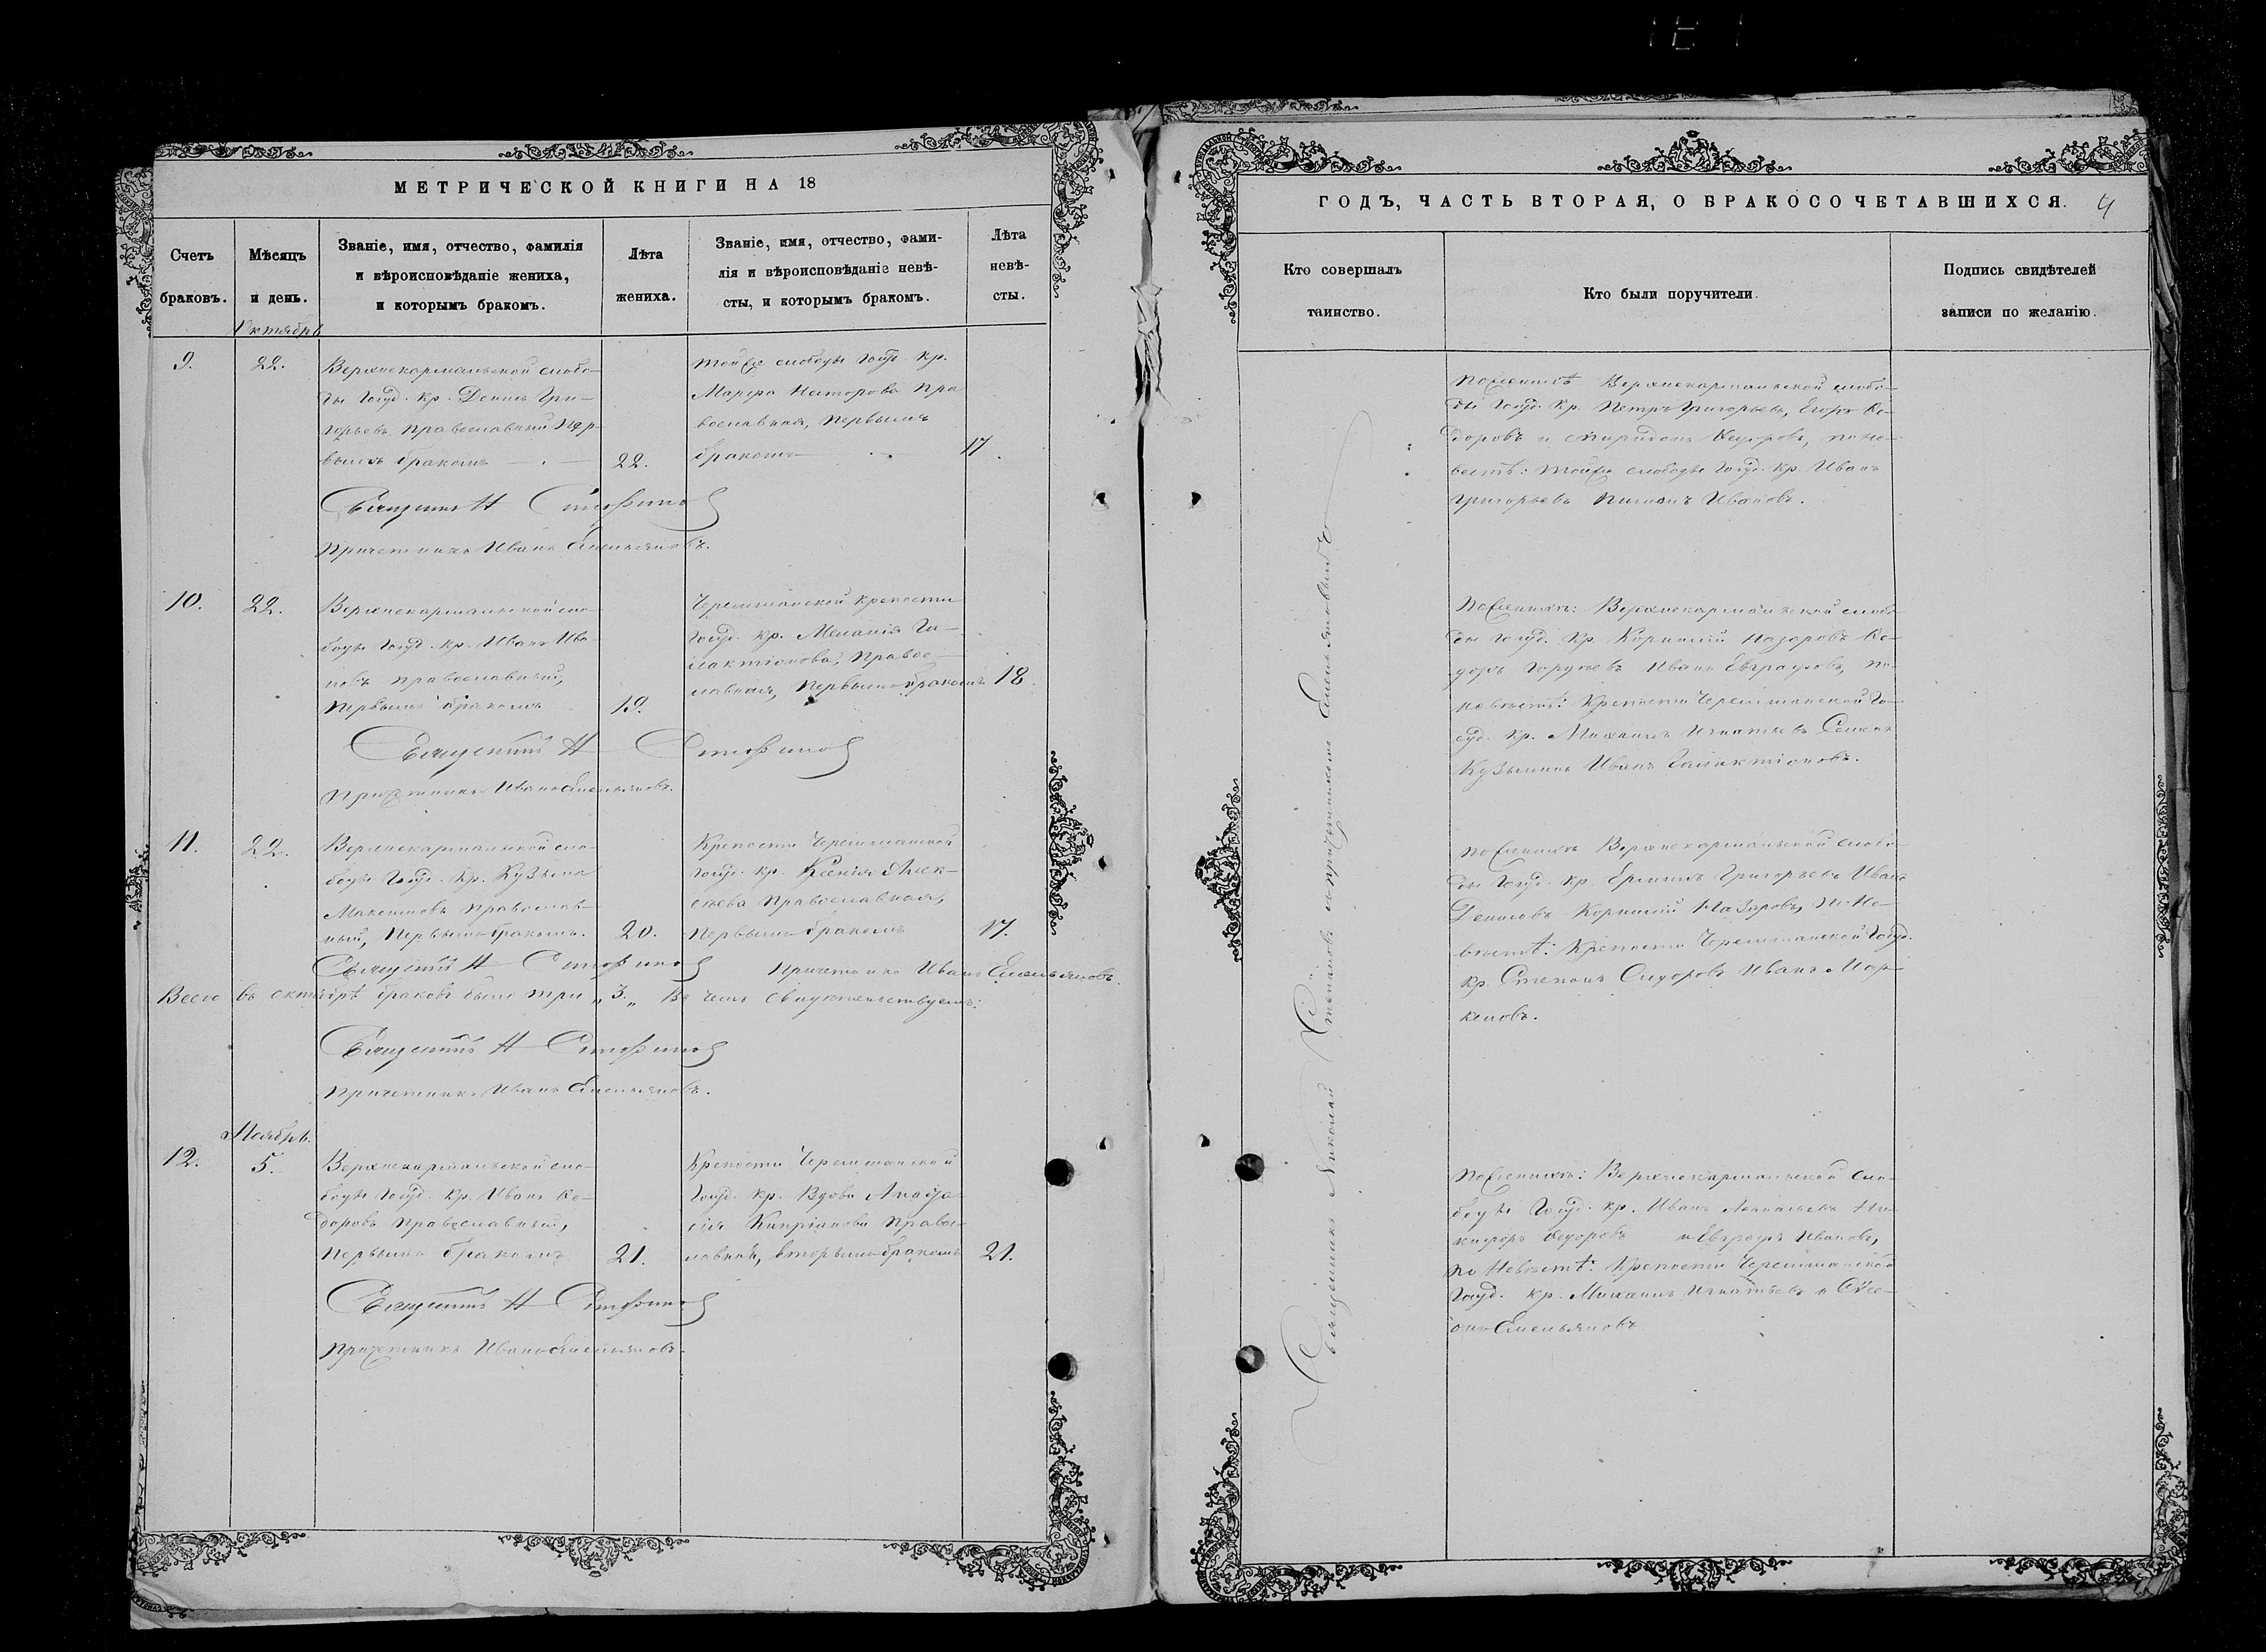 МЕТРИЧЕСКОЙ КНИГИ НА 18
Счетъ браковъ.
Мѣсяцъ и день.
Званіе, имя, отчество, фамилія
и вѣроисповѣданіе жениха,
и которымъ бракомъ.
Лѣта
жениха.
Званіе, имя, отчество, фами-
лія и вѣроисповѣданіе невѣ-
сты, и которымъ бракомъ.
Лѣта
невѣ-
сты.
Октябрь
9.
22.
Верхнекармальской слобо-
ды Госуд. кр. Денисъ Гри-
горьевъ Православный Пер-
вымъ бракомъ
22.
той же слободы Госуд. кр.
Марфа Несторова Пра
вославная, Первымъ
бракомъ
17.
Священникъ Н
Причетникъ Иванъ Емельяновъ.
10.
22.
Верхнекармальской сло-
боды Госуд. кр. Иванъ Ива-
новъ православный,
Первымъ бракомъ
19.
Черемшанской крепости
Госуд. кр. Меланія Га-
лактіонова, Правос-
лавная, Первымъ бракомъ
18.
Священникъ Н
Причетникъ Иванъ Емельяновъ.
11.
22.
Верхнекармальской сло-
боды Госуд. кр. Кузьма
Максимовъ Православ-
ный, Первымъ бракомъ.
20.
Крепости Черемшанской
Госуд. кр. Ксенія Алек-
сѣева Православная,
Первымъ бракомъ
17.
Священникъ Н
Причетникъ Иванъ Емельяновъ.
Всего въ октябрѣ браковъ было три „3.„ Въ чемъ Свидѣтельствуемъ:
Священникъ Н
Причетникъ Иванъ Емельяновъ.
Ноябрь.
12.
5.
Верхнекармальской сло-
боды Госуд. кр. Иванъ Ѳе-
доровъ Православный,
Первымъ бракомъ
21.
Крепости Черемшанской
Госуд. кр. Вдова Анаста
сія Кипріанова Правос-
лавная, вторымъ бракомъ
21.
Священникъ Н
Причетникъ Иванъ Емельяновъ.
ГОДЪ, ЧАСТЬ ВТОРАЯ, О БРАКОСОЧЕТАВШИХСЯ.
4
Кто совершалъ
таинство.
Кто были поручители.
Подпись свидѣтелей
записи по желанію.
Священникъ Николай съ причетникомъ Емельяновымъ
По женихѣ Верхнекармальской слобо-
ды Госуд. кр. Петръ Григорьевъ, Егоръ Ѳе-
доровъ и Спиридонъ Ѳедоровъ, по не-
вестѣ: той же слободы Госуд. кр. Иванъ
Григорьевъ Ивановъ.
По женихѣ: Верхнекармальской слобо
ды Госуд. кр. Корнилій Назаровъ Ѳе-
доръ Иванъ Евграфовъ, по
невѣстѣ: Крепости Черемшанской Го-
суд. кр. Михаилъ Игнатьевъ Семенъ
Кузьминъ Иванъ Галактіоновъ.
По женихѣ Верхнекармальской слобо-
ды Госуд. кр. Ермилъ Григорьевъ Иванъ
Денисовъ Корнилій Назаровъ, По Не-
вѣстѣ: Крепости Черемшанской Госуд.
кр. Степанъ Сидоровъ Иванъ Мар-
келовъ.
По женихѣ: Верхнекармальской сло-
боды Госуд. кр. Иванъ Ни-
кифоръ Ѳедоровъ и Евграфъ Ивановъ,
по Невѣстѣ: Крепости Черемшанской
Госуд. кр. Михаилъ Игнатьевъ и
Емельяновъ